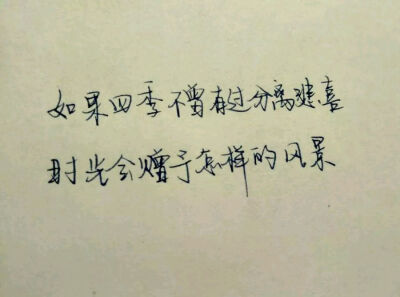 如果四季不曾有过分离悲喜
时光会赠予怎样的风景